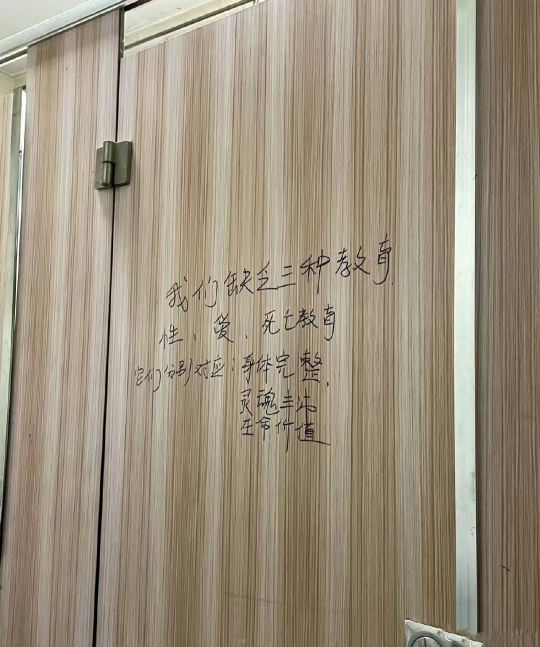 我们缺乏三种教育
性、爱、死亡教育
它们分别对应：身体完整，
灵魂丰沛
生命价值